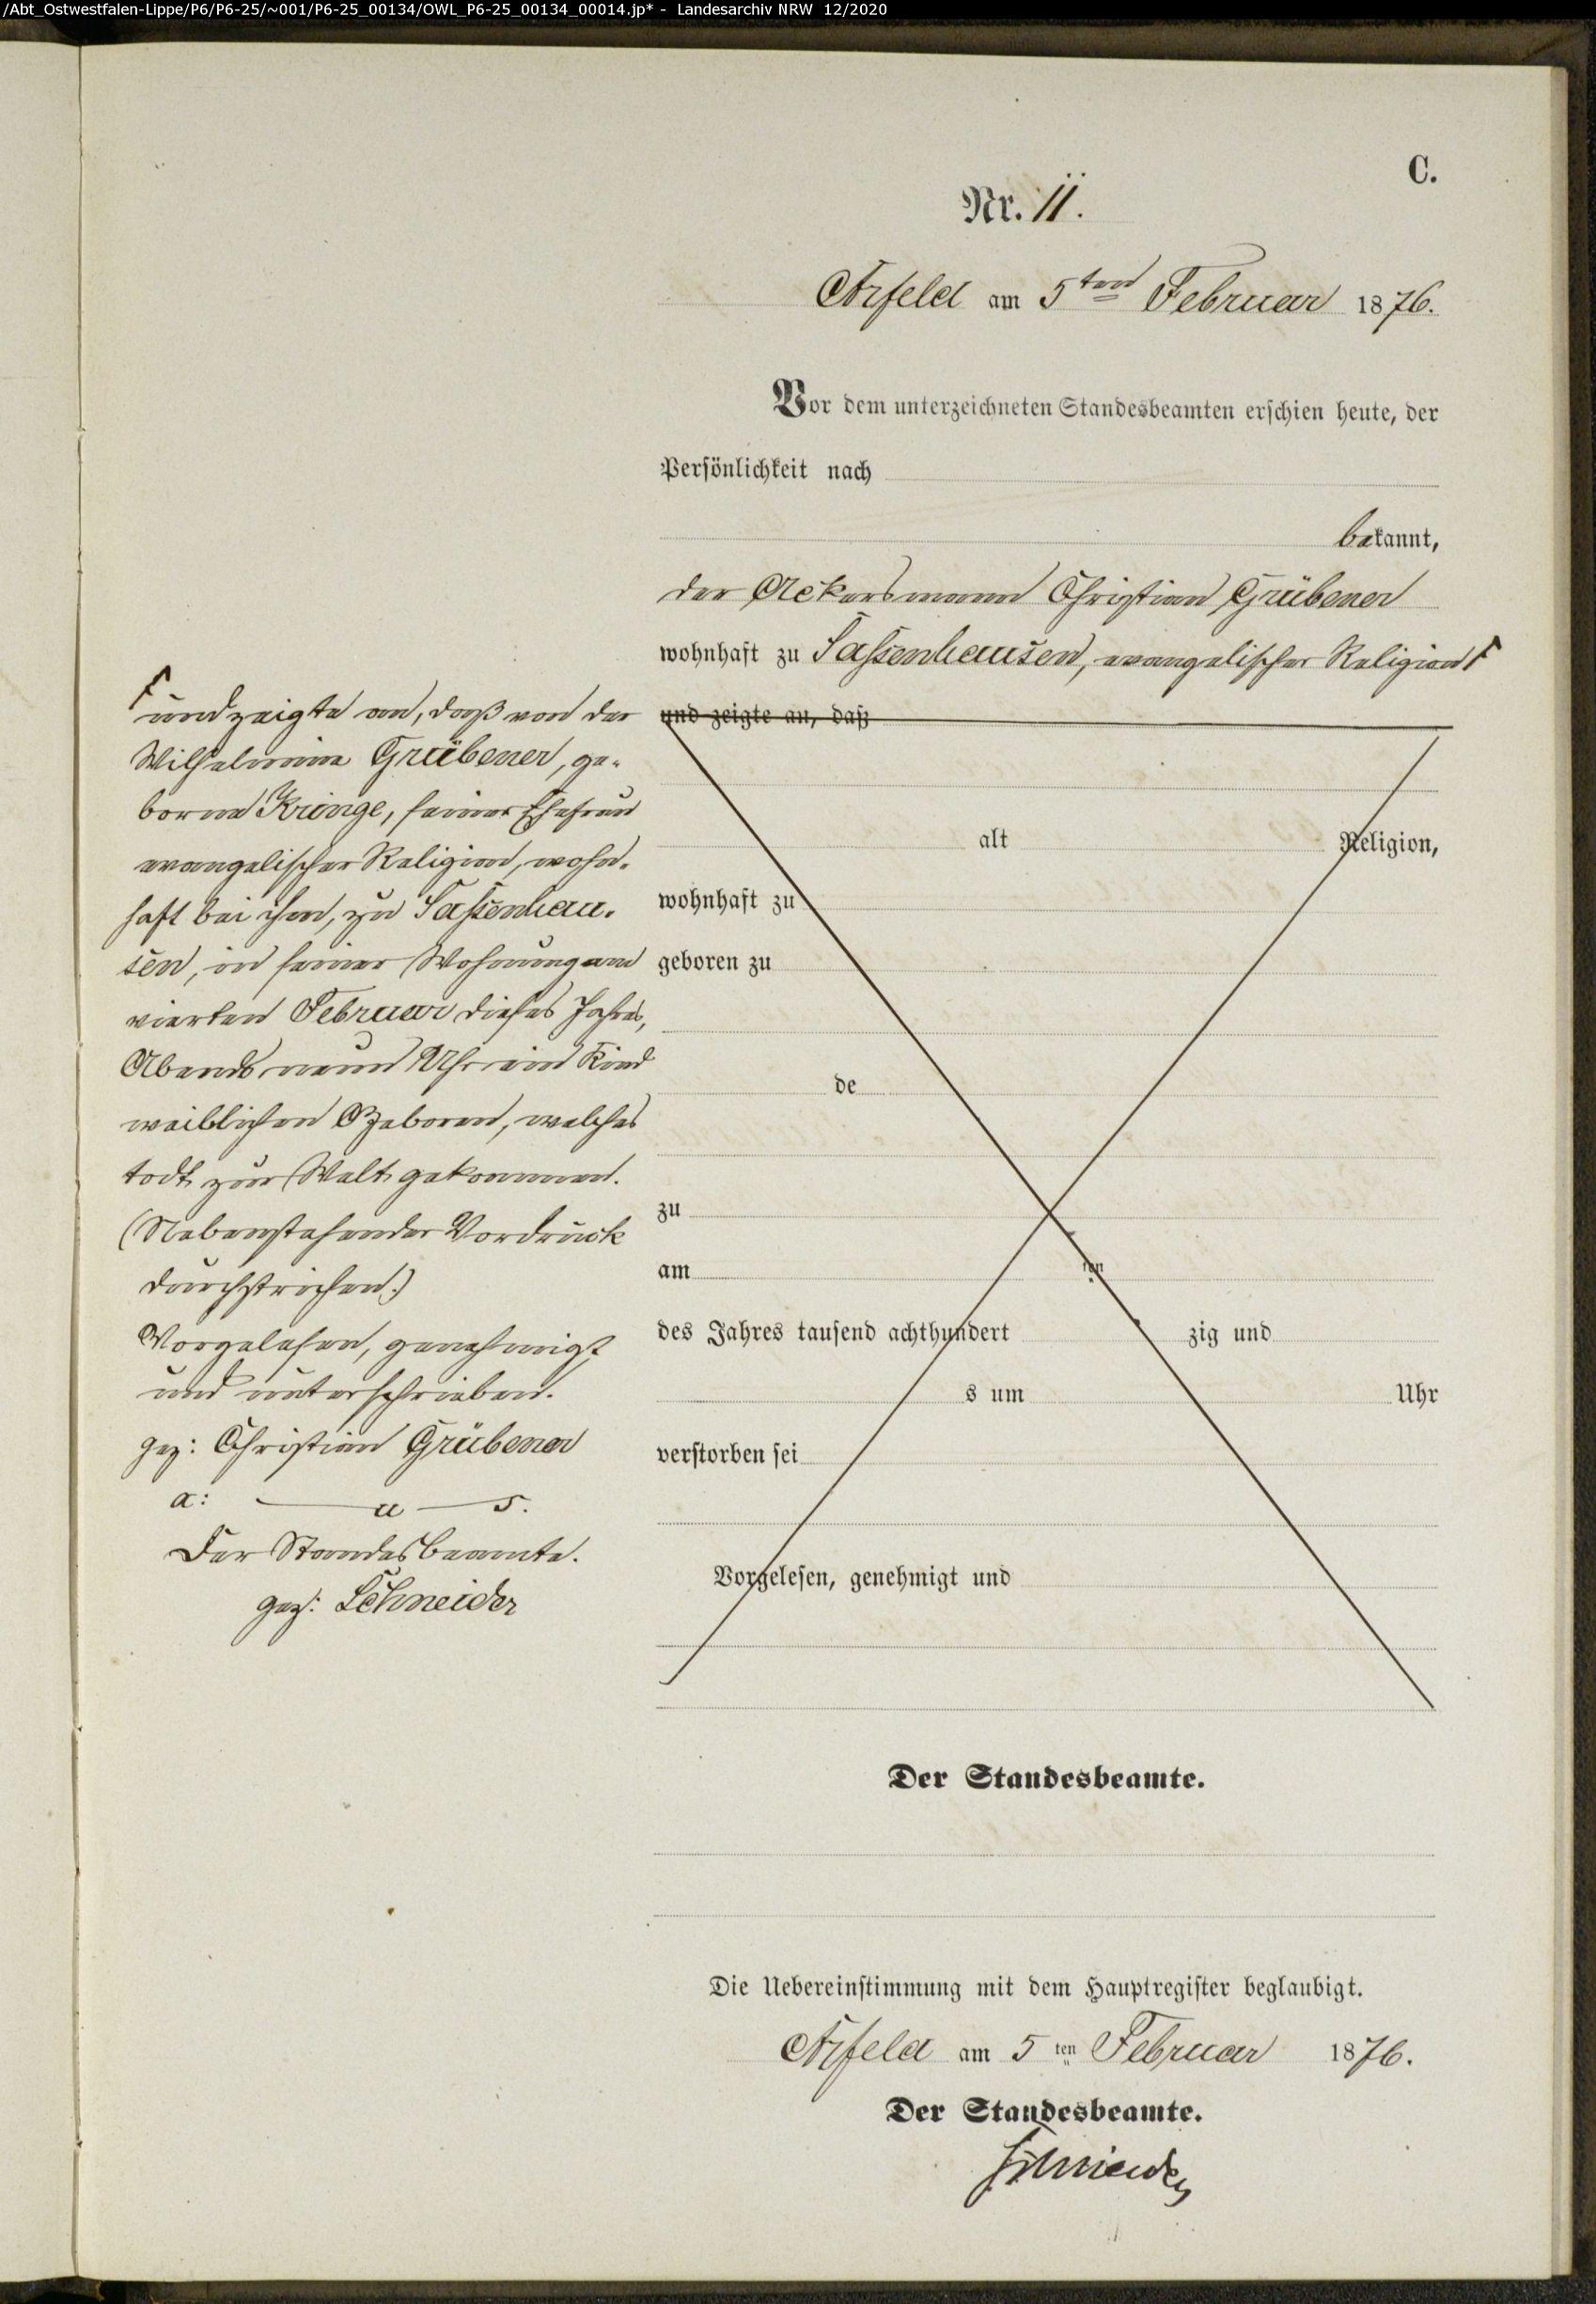 /Abt_Ostwestfalen-Lippe/P6/P6-25/~001/P6-25_00134/OWL_P6-25_00134_00014.jp* - Landesarchiv NRW 12/2020
C.
Nr. 11.
Arfeld am 5ten Februar 1876.
Vor dem unterzeichneten Standesbeamten erschien heute, der
Persönlichkeit nach
bekannt,
der Ackersmann Christian Grübener
wohnhaft zu Sassenhausen, evangelischer Religion
und zeigte an, daß
alt Religion,
wohnhaft zu
geboren zu
de
zu
am ten
des Jahres tausend achthundert zig und
s um Uhr
verstorben sei
Vorgelesen, genehmigt und
und zeigte an, daß von der
Wilhelmine Grübener, ge-
borne Kringe, seiner Ehefrau
evangelischer Religion, wohn-
haft bei ihm, zu Sassenhau-
sen, in seiner Wohnung am
vierten Februar dieses Jahres,
Abends neun Uhr ein Kind
weiblichen Geboren, welches
todt zur Welt gekommen.
(Nebenstehender Vordruck
durchstrichen.)
Vorgelesen, genehmigt
und unterschrieben.
gez: Christian Grübener
a: u s.
Der Standesbeamte.
gez: Schneider
Der Standesbeamte.
Die Uebereinstimmung mit dem Hauptregister beglaubigt.
Arfeld am 5 ten Februar 1876.
Der Standesbeamte.
Schneider